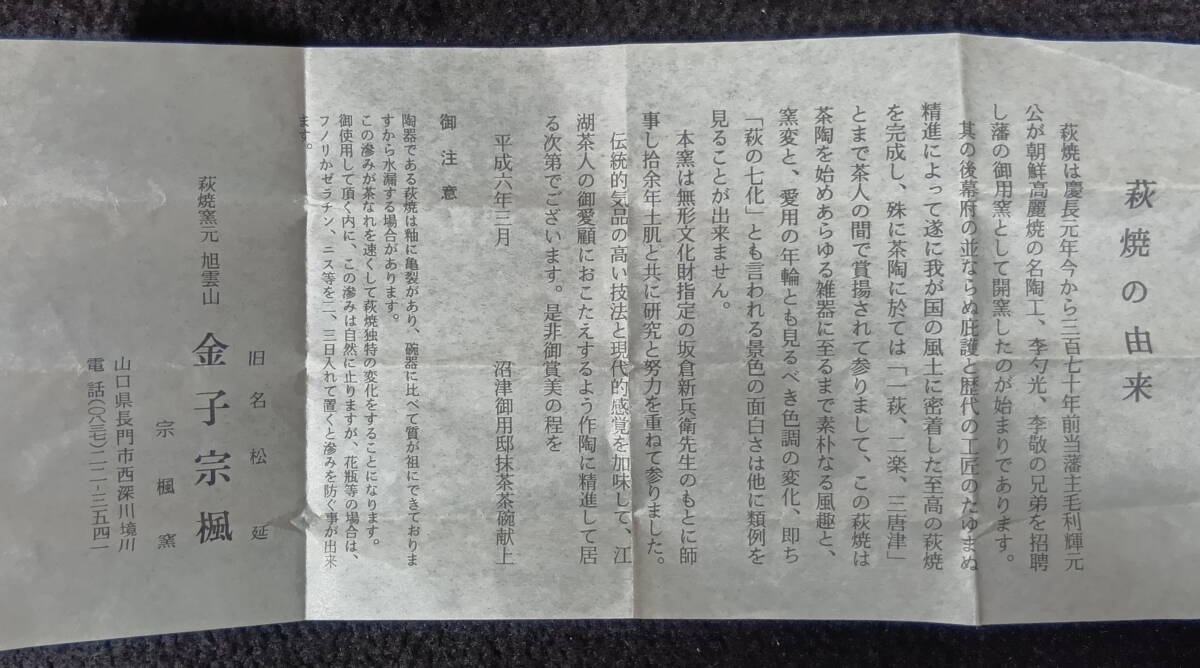 萩焼の由来
萩焼は慶長元年今から三百七十年前当藩主毛利輝元
公が朝鮮高麗焼の名陶工、李勺光、李敬の兄弟を招聘
し藩の御用窯として開窯したのが始まりであります。
其の後幕府の並ならぬ庇護と歴代の工匠のたゆまぬ
精進によって遂に我が国の風土に密着した至高の萩焼
を完成し、殊に茶陶に於ては「一萩、二楽、三唐津」
とまで茶人の間で賞揚されて参りまして、この萩焼は
茶陶を始めあらゆる雑器に至るまで素朴なる風趣と、
窯変と、愛用の年輪とも見るべき色調の変化、即ち
「萩の七化」とも言われる景色の面白さは他に類例を
見ることが出来ません。
本窯は無形文化財指定の坂倉新兵衛先生のもとに師
事し拾余年土肌と共に研究と努力を重ねて参りました。
伝統的気品の高い技法と現代的感覚を加味して、江
湖茶人の御愛顧におこたえするよう作陶に精進して居
る次第でございます。是非御賞美の程を
平成六年三月 沼津御用邸抹茶茶碗献上
御注意
陶器である萩焼は釉に亀裂があり、磁器に比べて質が粗にできておりま
すから水漏する場合があります。
この滲みが茶なれを速くして萩焼独特の変化をすることになります。
御使用して頂く内に、この滲みは自然に止りますが、花瓶等の場合は、
フノリかゼラチン、ニス等を二、三日入れて置くと滲みを防ぐ事が出来
ます。
旧名松延
萩焼窯元 旭雲山 金子宗楓
宗楓窯
山口県長門市西深川境川
電話(〇八三七)二二-三五四一